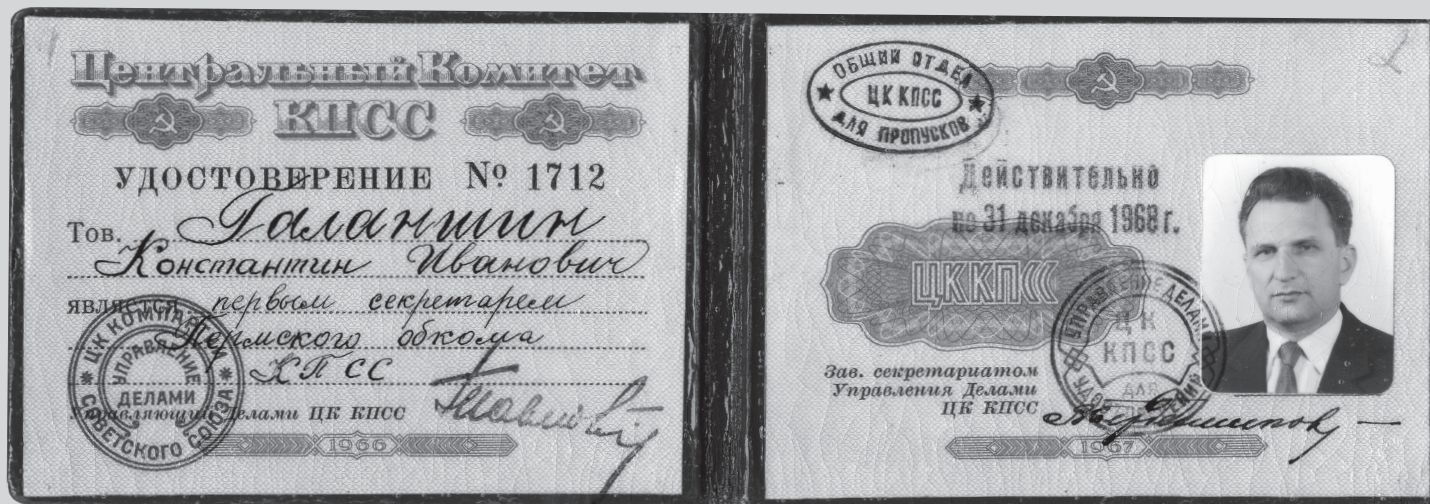 Центральный Комитет
КПСС
УДОСТОВЕРЕНИЕ № 1712
Тов. Галаншин
Константин Иванович
является первым секретарем
Пермского обкома
КПСС
Управляющий Делами ЦК КПСС
ЦК КОМПАРТИИ СОВЕТСКОГО СОЮЗА
УПРАВЛЕНИЕ
ДЕЛАМИ
1966
ОБЩИЙ ОТДЕЛ
ЦК КПСС
ДЛЯ ПРОПУСКОВ
Действительно
по 31 декабря 1968 г.
ЦК КПСС
УПРАВЛЕНИЕ ДЕЛАМИ
ЦК
КПСС
ДЛЯ
Зав. секретариатом
Управления Делами
ЦК КПСС
1967